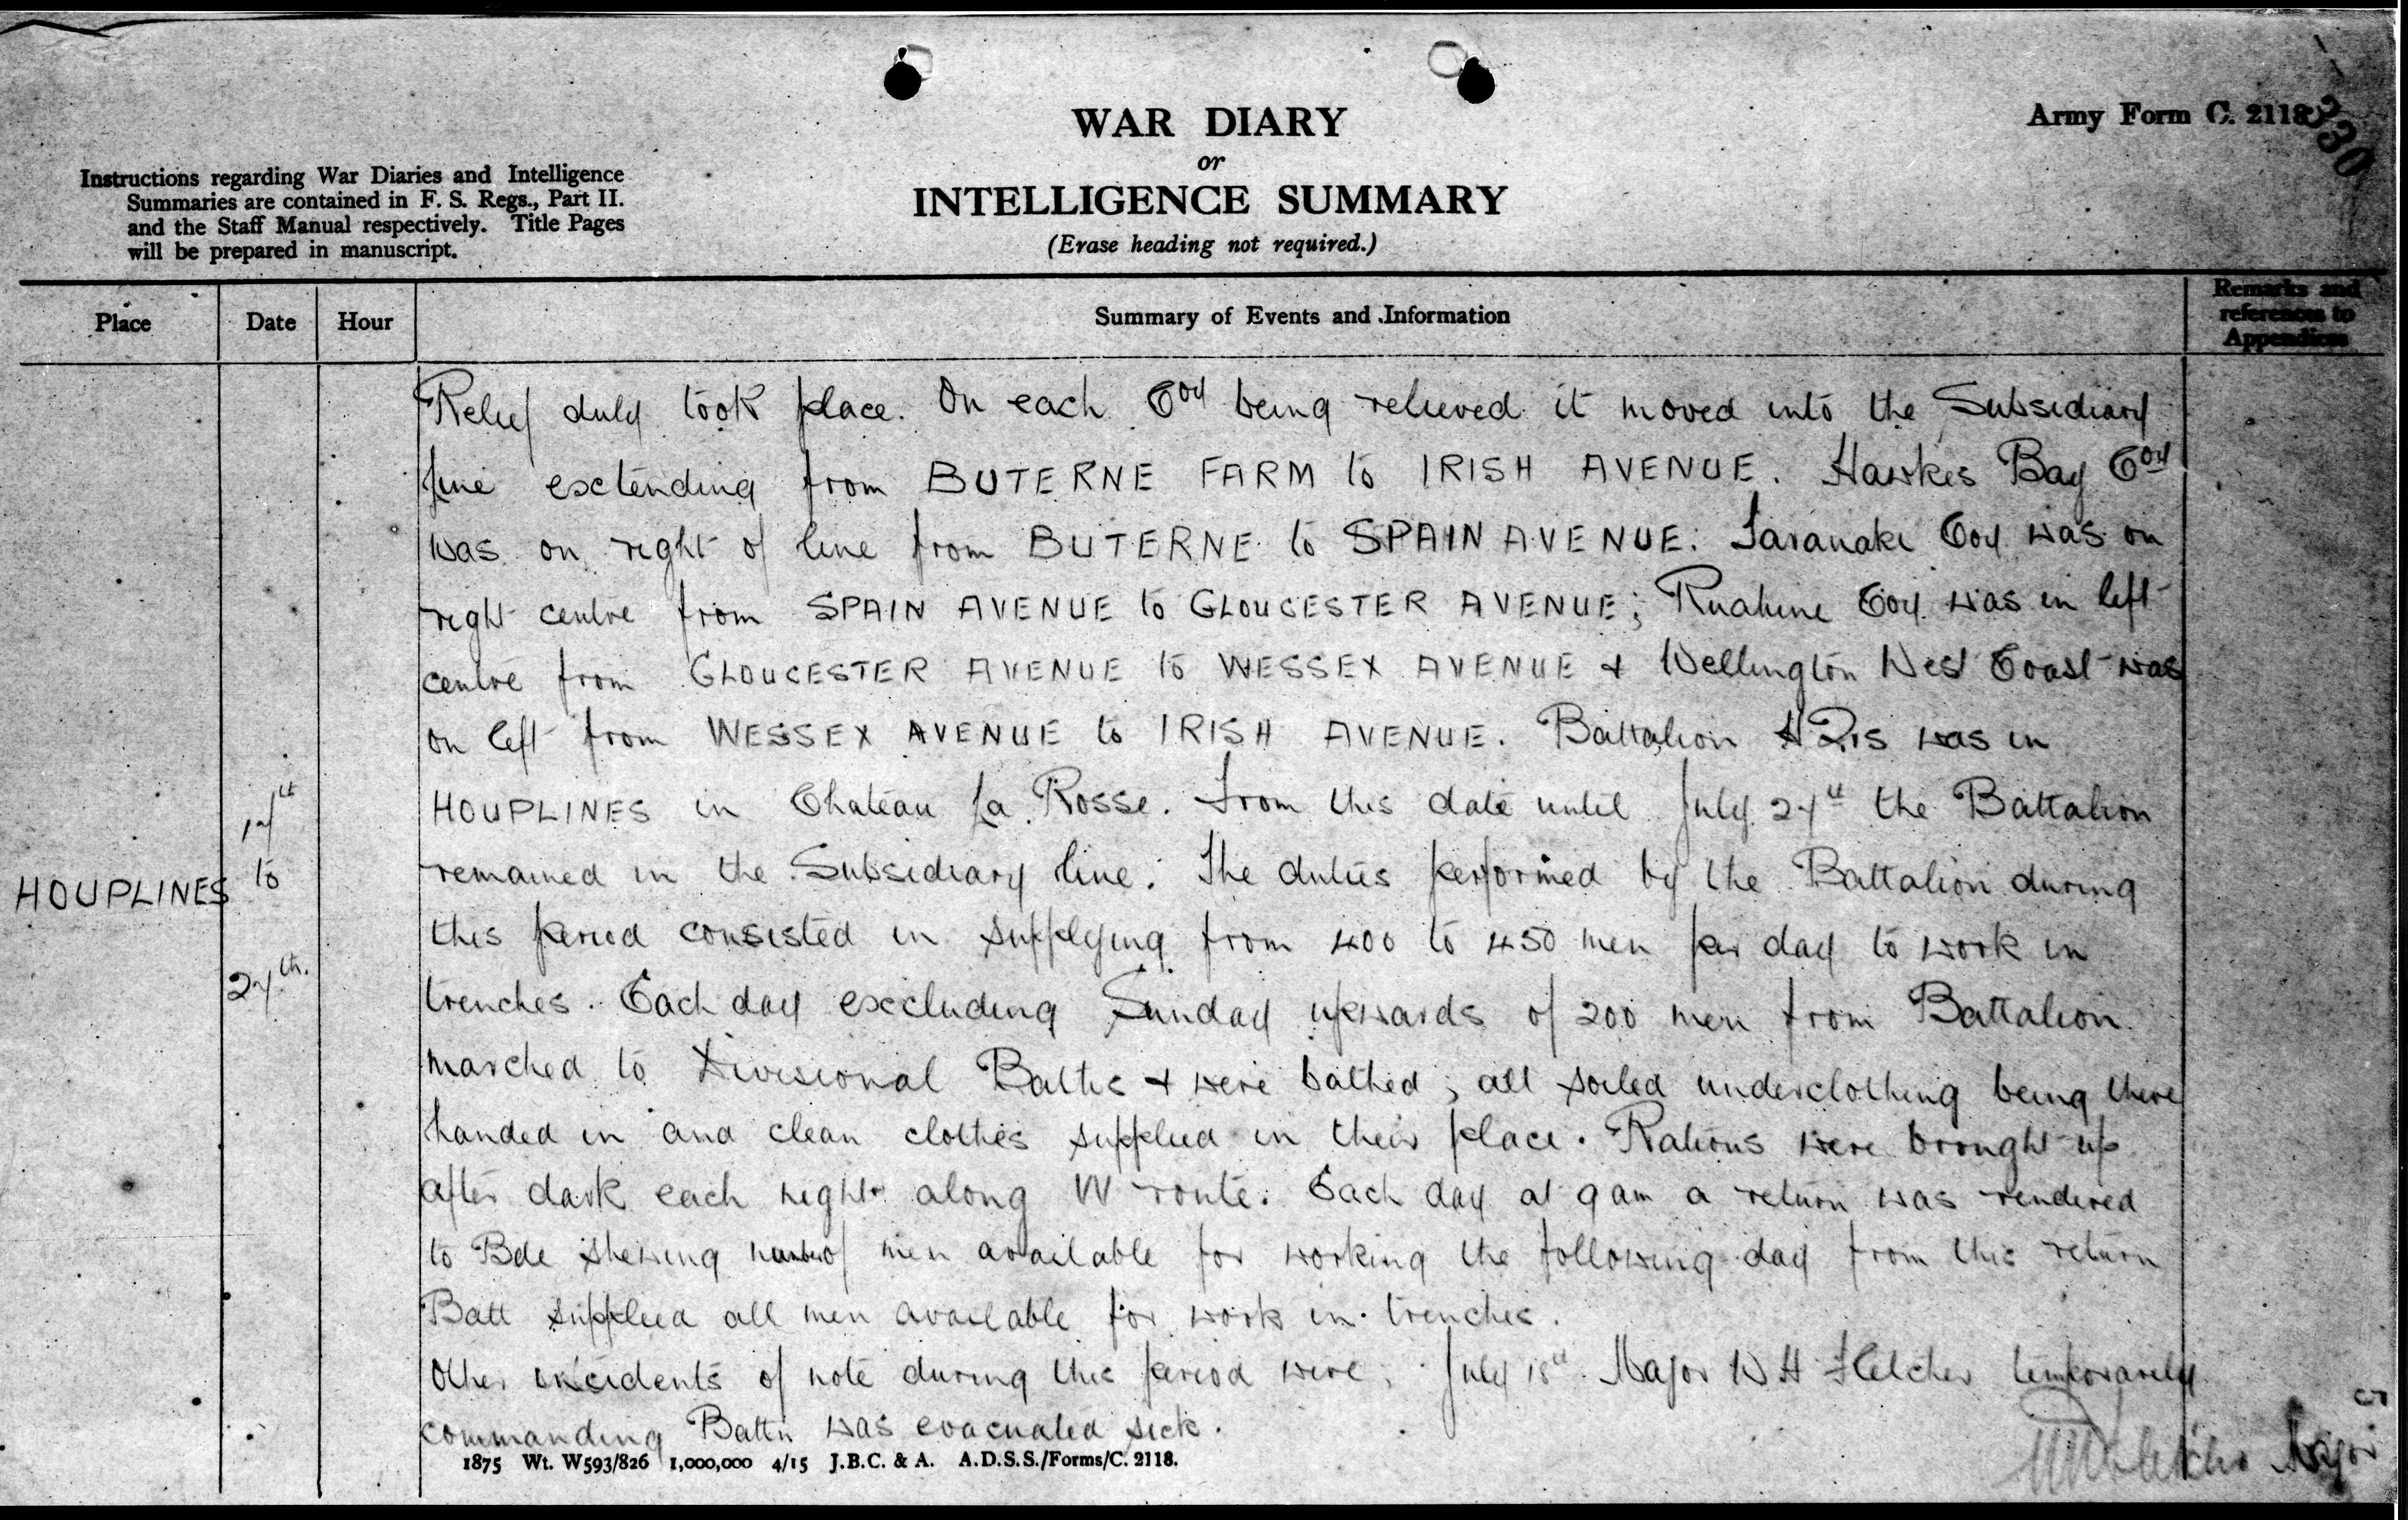 WAR DIARY
or
INTELLIGENCE SUMMARY
(Erase heading not required.)
Army Form C. 2118
330
Instructions regarding War Diaries and Intelligence
Summaries are contained in F. S. Regs., Part II.
and the Staff Manual respectively. Title Pages
will be prepared in manuscript.
Place
Date
Hour
Summary of Events and Information
Remarks and
references to
Appendices
Relief duly took place. On each Coy being relieved it moved into the Subsidiary
line extending from BUTERNE FARM to IRISH AVENUE. Hawkes Bay Coy
was on right of line from BUTERNE to SPAIN AVENUE. Taranaki Coy was on
right centre from SPAIN AVENUE to GLOUCESTER AVENUE; Ruahine Coy was in left
centre from GLOUCESTER AVENUE to WESSEX AVENUE & Wellington West Coast was
on left from WESSEX AVENUE to IRISH AVENUE. Battalion HQrs was in
HOUPLINES in Chateau La Rosse. From this date until July 27th the Battalion
remained in the Subsidiary line. The duties performed by the Battalion during
this period consisted in supplying from 400 to 450 men per day to work in
trenches. Each day excluding Sunday upwards of 200 men from Battalion
marched to Divisional Baths & were bathed; all soiled underclothing being there
handed in and clean clothes supplied in their place. Rations were brought up
after dark each night along W route. Each day at 9 am a return was rendered
to Bde shewing number of men available for working the following day from this return
Batt supplied all men available for work in trenches.
Other incidents of note during this period were; July 18th Major W H Fletcher temporarily
commanding Battn was evacuated sick.
HOUPLINES
17th
to
27th.
Major
1875 Wt. W593/826 1,000,000 4/15 J.B.C. & A. A.D.S.S./Forms/C. 2118.